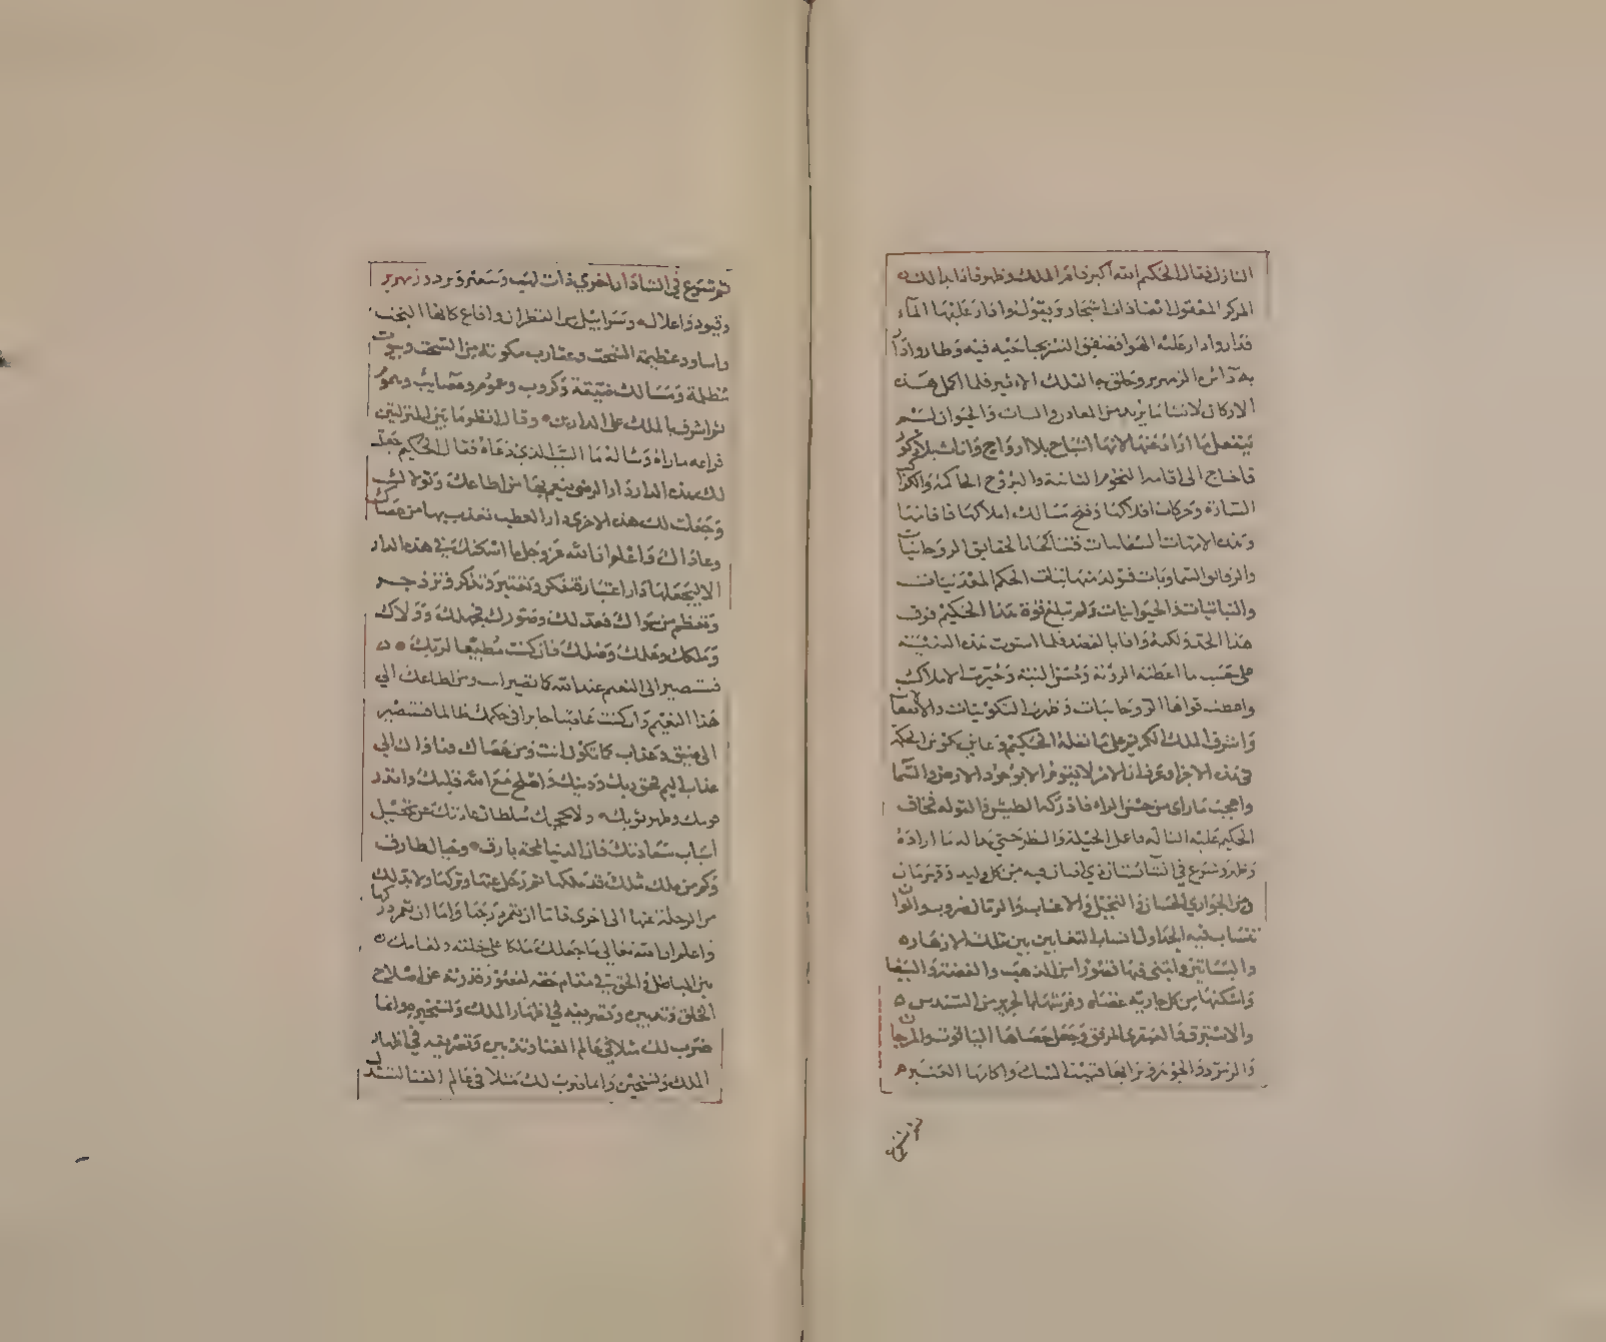 النازل فقال الحكيم الله أكبر فامر الملك وظهر فاذا بدا لك
المركز المعقول
فدار وادار عليه الهوا فصفق النسر بجناحيه فيه وطار وادار
به دائرة الزمهرير وحلق به الفلك الاثير فلما اكمل هذه
الاركان لانشا ما يريد من المعادن والنبات والحيوان لم
ينفعل ما اراد عنها لانها اشباح بلا ارواح واناث بلا ذكور
فاحتاج الى اقامة النجوم الثابتة والبروج الحاكمة والكواكب
السيارة وحركات افلاكها وفتح مسالك املاكها
وهذه الامهات السفليات فتناكحا الحقايق الروحانيات
والرقائق السماويات فتولد منها تلك الحكم المعدنيات
والنباتيات والحيوانيات ولم تبلغ قوة هذا الحكيم فوق
هذا الحد ولكمه وافا بالقصد فلما استوت هذه البنية
على حسب ما اعطته الروية وحسن النية وخيرت الاملاك
واعطت قواها الروحانيات وظهرت التكوينيات والانفعالات
واشرف الملك الكريم على ما فعله الحكيم وعاين كون الحكمة
في هذه الاجزا وعرف ان الامر لا يقوم الا بوجود الارض والسما
واعجبه ما راى من حسن المراة فادركه الطيش والتوله فخاف
الحكيم عليه التاله فاعمل الحيلة والنظر حتى هيا له ما اراده
وظهر وشرع في انشا بستان ذي افنان فيه من كل وليد وقهرمان
ومن الجواري الحسان والنخيل والاعناب والرمان ضروب والوان
تنساب فيه الجداول انسياب الثعابين بين تلك الازهار
والبساتين وابتنى فيها قصورا من الذهب والفضة والبيضا
واسكنها من كل جارية غضة وفرشها بالحرير من السندس
والاستبرق والعبقري المرقق وجعل حصباها الياقوت والمرجان
والزمرد والجوهر وترابها فتيت المسك واكارها العنبر
ثم شرع
ثم شرع في انشا دار اخرى ذات لهب وسعير وبرد وزمهرير
وقيود واغلال وسرابيل من القطران وافاع كانها البخت
واساود عظيمة النحت وعقارب مكونة من السحت وبيوت
مظلمة ومسالك ضيقة وكروب وغموم ومصايب وهموم
ثم اشرف بالملك على الدارين وقال انظر ما بين المنزلتين
فراعه ما راه وساله ما السبب الذي دعاه فقال الحكيم جعلت
لك هذه الدار دار الرضى ينعم بها من اطاعك وتولاك
وجعلت لك هذه الاخرى دار الغضب تعذب بها من عصاك
وعاداك واعلم ان الله عز وجل ما اسكنك في هذه الدار
الا ليجعلها دار اعتبار فتفكر وتعتبر وتذكر وتزدجر
وتعظم من سواك فعدلك وصورك فجملك وولاك
وملكك وعلمك وفضلك فان كنت مطيعا لربك
فستصير الى النعيم عند الله كما تصير انت من اطاعك الى
هذا النعيم وان كنت عاصيا جايرا في حكمك ظالما فتصير
الى ضيق وعذاب كما تكون انت ومن عصاك وناواك الى
عذاب اليم فحقق ربك ودينك واصلح مع الله قلبك وانذر
قومك وطهر ثوبك ولا يحجبك سلطان عادتك عن تحصيل
اسباب سعادتك فان الدنيا لمحة بارق وخيال طارق
وكم من ملك مثلك قد ملكها ثم رحل عنها وتركها ولا بد لك
من الرحلة عنها الى اخرى فاما ان يتمم درجها واما ان يتمم دركها
واعلم ان الله تعالى ما جعلك ملكا على خلقه ولقامك
بين الباطل والحق في مقام حقه لقصور قدرته عن اصلاح
الخلق وتدبيره وتصريفه في اظهار الملك وتسخيره وانما
ضرب لك مثلا في عالم الفنا وتدبيره وتصريفه في اظهار
الملك وتسخيره وانما ضرب لك مثلا في عالم الفنا لتستدل